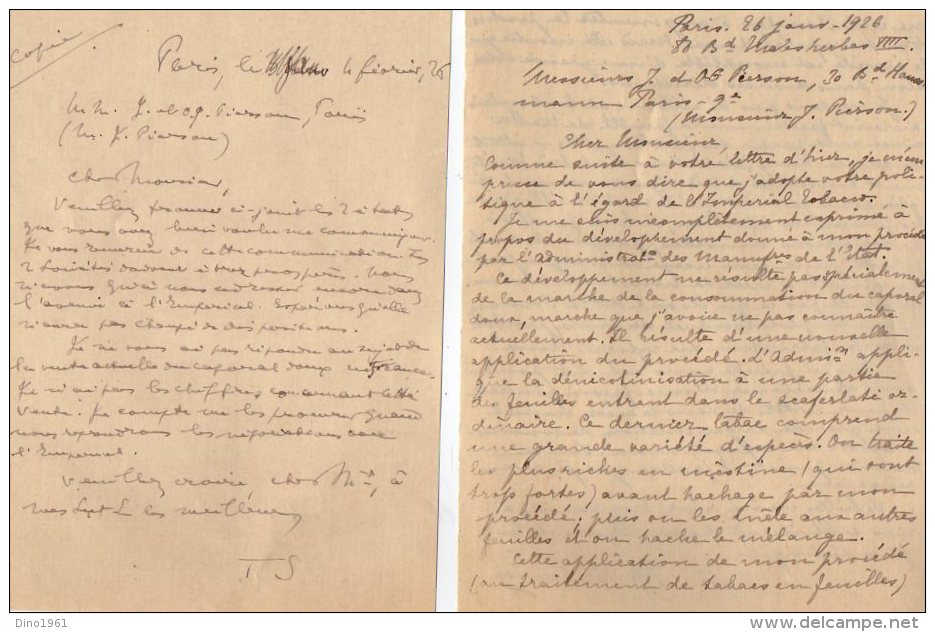 copie
Paris, le 4 février, 26
M.M. J. et O.G. Pierson, Paris
(M. J. Pierson)
Cher Monsieur,
Veuillez trouver ci-joint les 2 états
que vous avez bien voulu me communiquer.
Je vous remercie de cette communication. Les
2 Sociétés doivent être prospères. Nous
l'avenir à l'Imperial. Espérons qu'elle
n'aura pas changé de dispositions.
Je ne vous ai pas répondu au sujet de
la vente actuelle du caporal doux
Je n'ai pas les chiffres concernant cette
vente. Je compte me les procurer quand
nous reprendrons les négociations avec
l'Imperial.
Veuillez croire, cher Mr, à
mes les meilleurs
T S
Paris. 26 janv-1926
80 Bd Malesherbes VIII.
Messieurs J. et O.G Pierson, 30 Bd Hauss
mann Paris-9e
(Monsieur J. Pierson.)
Cher Monsieur,
Comme suite à votre lettre d'hier, je m'em
presse de vous dire que j'adopte votre poli-
tique à l'égard de l'Imperial Tobacco.
Je me suis incomplètement exprimé à
propos du développement donné à mon procédé
par l'Administratn des Manufres de l'Etat.
Ce développement ne résulte pas spécialement
de la marche de la consommation du caporal
doux, marche que j'avoue ne pas connaître
actuellement. Il résulte d'une nouvelle
application du procédé. L'Admion appli-
que la dénicotinisation à une partie
des feuilles entrant dans le scaferlati or-
dinaire. Ce dernier tabac comprend
une grande variété d'espèces. On traite
les plus riches en nicotine (qui sont
trop fortes) avant hachage par mon
procédé. puis on les mêle aux autres
feuilles et on hache le mélange.
Cette application de mon procédé
(au traitement de tabacs en feuilles)
Dino1961